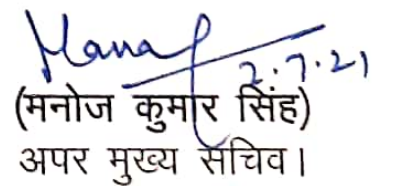 2.7.21
(मनोज कुमार सिंह)
अपर मुख्य सचिव।